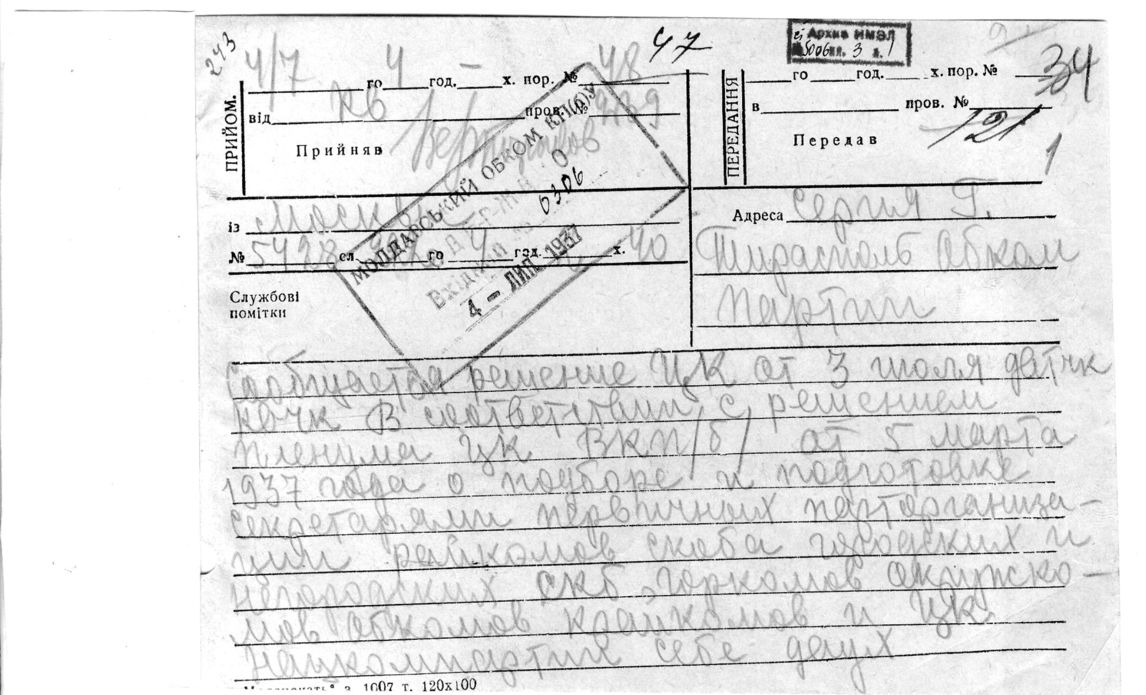 243
47
Архив ИМЭЛ
3
34
ПРИЙОМ.
4/7 го 4 год. х. пор. № 48
від Кв пров. № 939
Прийняв
ПЕРЕДАННЯ
го год. х. пор. №
в пров. № 121
Передав
1
МОЛДАВСЬКИЙ ОБКОМ КП(б)У
6306
4 – ЛИП. 1937
із Москвы
№ 5428 сл. го 4 год. х. 40
Службові
помітки
Адреса серия Г.
Тирасполь Обком
партии
Сообщается решение ЦК от 3 июля двтчк
квчк В соответствии с решением
пленума ЦК ВКП/б/ от 5 марта
1937 года о подборе и подготовке
секретарями первичных парторганиза-
ции райкомов скоба городских и
негородских скб, горкомов окружко-
мов обкомов крайкомов и ЦК
нацкомпартии себе двух
з. 1007 т. 120х100